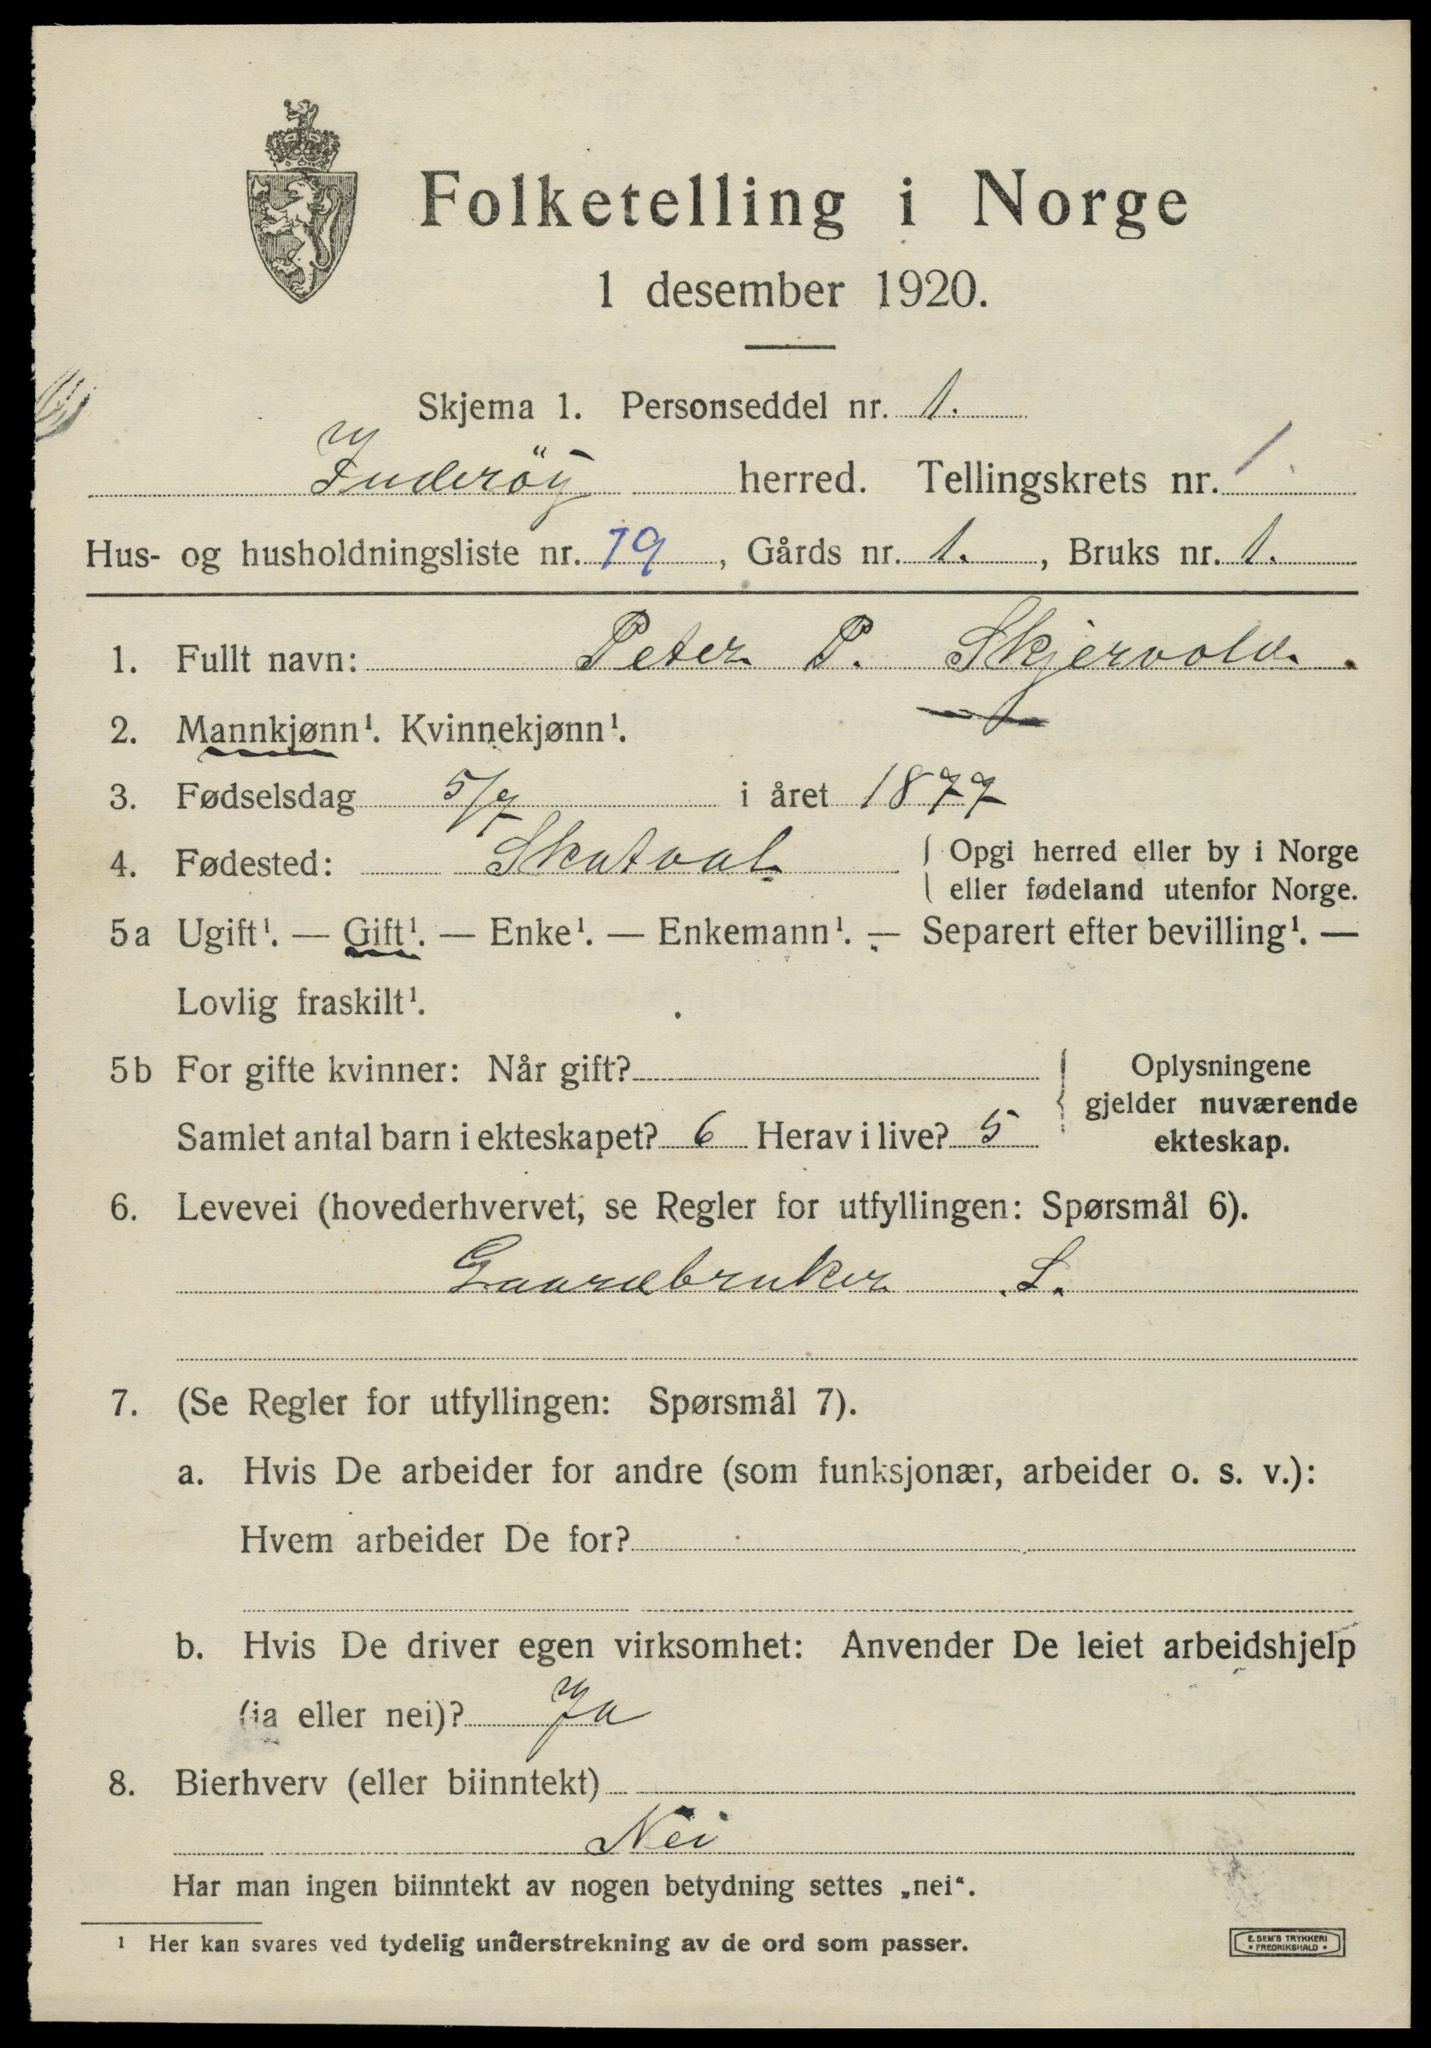 Folketelling i Norge
1 desember 1920.
Skjema 1. Personseddel nr. 1.
Inderöy herred. Tellingskrets nr. 1.
Hus- og husholdningsliste nr. 19, Gårds nr. 1., Bruks nr. 1.
1. Fullt navn: Peter P. Skjervold.
2. Mannkjønn¹. Kvinnekjønn¹.
3. Fødselsdag 5/7 i året 1877
4. Fødested: Skatval. Opgi herred eller by i Norge
eller fødeland utenfor Norge.
5a Ugift¹. — Gift¹. — Enke¹. — Enkemann¹. — Separert efter bevilling¹. —
Lovlig fraskilt¹.
5b For gifte kvinner: Når gift?
Samlet antal barn i ekteskapet? 6 Herav i live? 5
Oplysningene
gjelder nuværende
ekteskap.
6. Levevei (hovederhvervet, se Regler for utfyllingen: Spørsmål 6).
Gaardbruker S.
7. (Se Regler for utfyllingen: Spørsmål 7).
a. Hvis De arbeider for andre (som funksjonær, arbeider o. s. v.):
Hvem arbeider De for?
b. Hvis De driver egen virksomhet: Anvender De leiet arbeidshjelp
(ja eller nei)? Ja
8. Bierhverv (eller biinntekt)
Nei
Har man ingen biinntekt av nogen betydning settes „nei“.
¹ Her kan svares ved tydelig understrekning av de ord som passer.
E. SEM'S TRYKKERI
FREDRIKSHALD